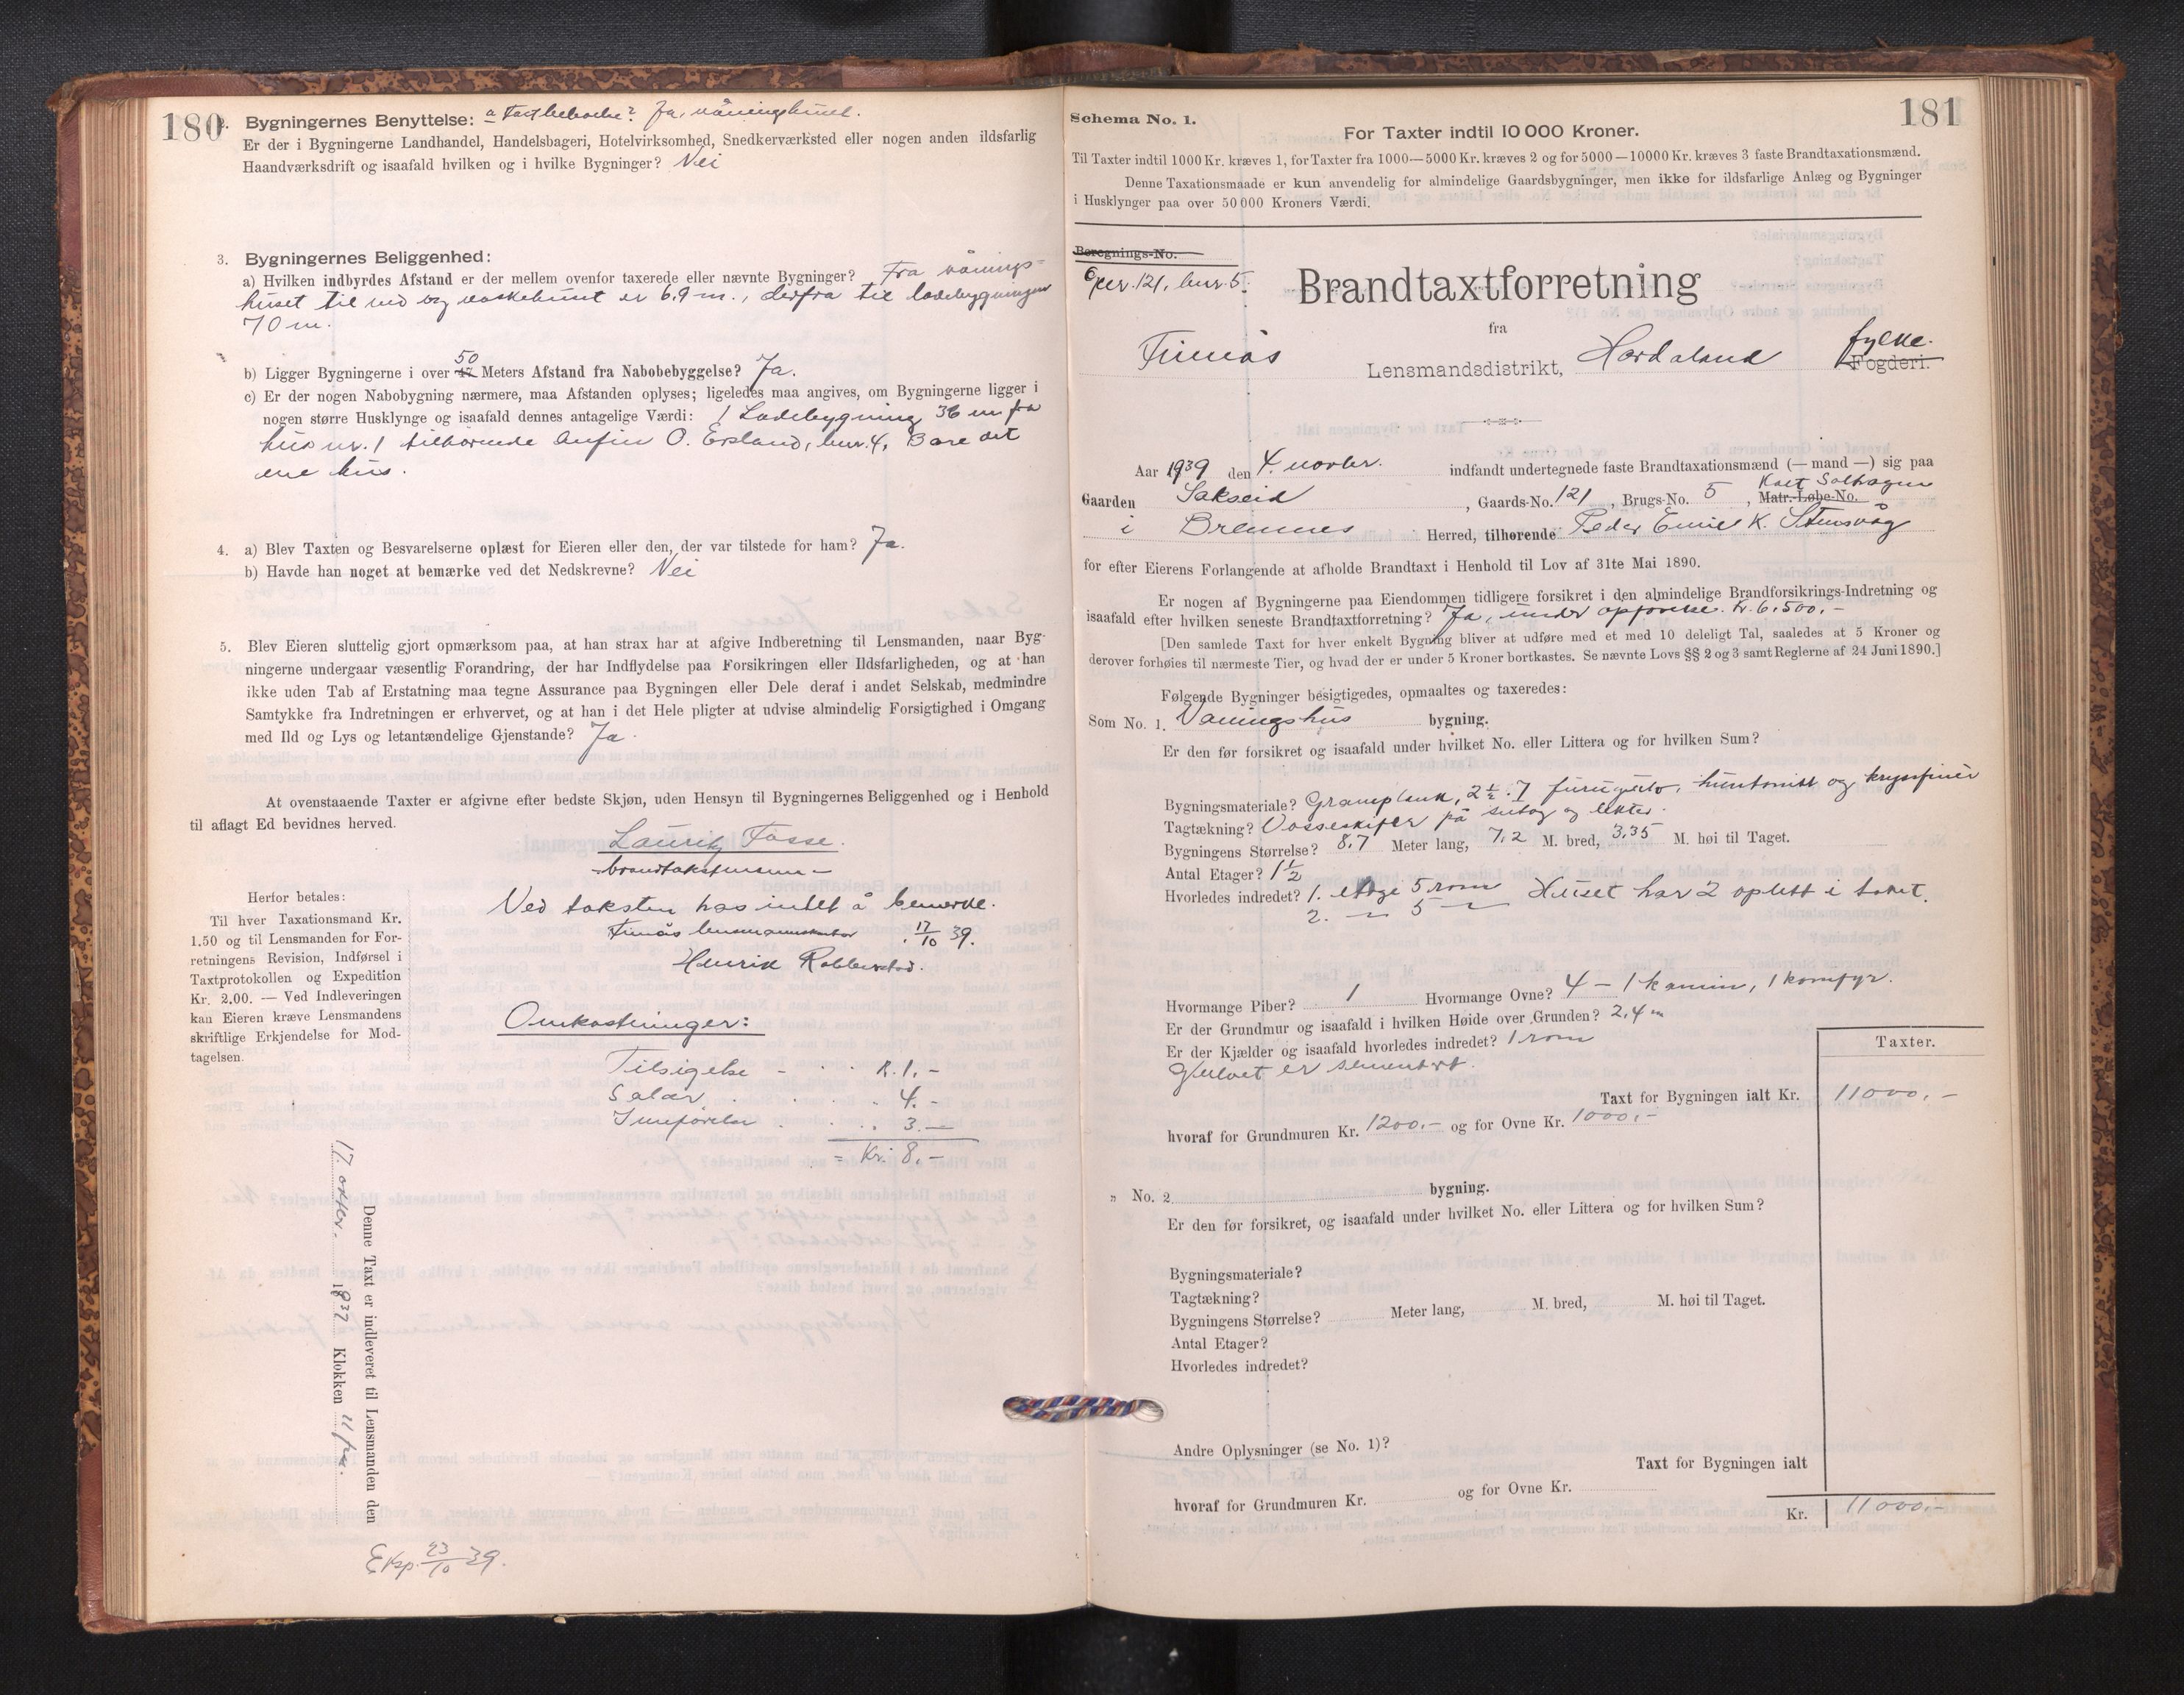 180
2. Bygningernes Benyttelse: a fast beboelse? Ja, våningshuset.
Er der i Bygningerne Landhandel, Handelsbageri, Hotelvirksomhed, Snedkerværksted eller nogen anden ildsfarlig
Haandværksdrift og isaafald hvilken og i hvilke Bygninger? Nei
3. Bygningernes Beliggenhed:
a) Hvilken indbyrdes Afstand er der mellem ovenfor taxerede eller nævnte Bygninger? Fra vånings-
huset til ved og vaskehuset er 6,9 m., derfra til ladebygningen
70 m.
b) Ligger Bygningerne i over 47 50 Meters Afstand fra Nabobebyggelse? Ja.
c) Er der nogen Nabobygning nærmere, maa Afstanden oplyses; ligeledes maa angives, om Bygningerne ligger i
nogen større Husklynge og isaafald dennes antagelige Værdi: 1 Ladebygning 36 m fra
hus nr. 1 tilhørende Anfin O. Ersland, bnr. 4, Bare det
ene hus.
4. a) Blev Taxten og Besvarelserne oplæst for Eieren eller den, der var tilstede for ham? Ja.
b) Havde han noget at bemærke ved det Nedskrevne? Nei
5. Blev Eieren sluttelig gjort opmærksom paa, at han strax har at afgive Indberetning til Lensmanden, naar Byg-
ningerne undergaar væsentlig Forandring, der har Indflydelse paa Forsikringen eller Ildsfarligheden, og at han
ikke uden Tab af Erstatning maa tegne Assurance paa Bygningen eller Dele deraf i andet Selskab, medmindre
Samtykke fra Indretningen er erhvervet, og at han i det Hele pligter at udvise almindelig Forsigtighed i Omgang
med Ild og Lys og letantændelige Gjenstande? Ja.
At ovenstaaende Taxter er afgivne efter bedste Skjøn, uden Hensyn til Bygningernes Beliggenhed og i Henhold
til aflagt Ed bevidnes herved.
Lauritz Fosse.
- branntakstmann -
Herfor betales:
Til hver Taxationsmand Kr.
1.50 og til Lensmanden for For-
retningens Revision, Indførsel i
Taxtprotokollen og Expedition
Kr. 2.00. — Ved Indleveringen
kan Eieren kræve Lensmandens
skriftlige Erkjendelse for Mod-
tagelsen.
Ved taksten has intet å bemerke.
Finnås lensmannskontor 17/10 39.
Henrik Robberstad.
Omkostninger:
Tilsigelse - . . K. 1,-
Salær . . . . 4.-
Innførelse . . . 3.—
= Kr. 8,-
Denne Taxt er indleveret til Lensmanden den
17. oktbr. 1939 Klokken 11 fm.
Eksp. 23/10 39.
181
Schema No. 1.
For Taxter indtil 10 000 Kroner.
Til Taxter indtil 1000 Kr. kræves 1, for Taxter fra 1000—5000 Kr. kræves 2 og for 5000—10000 Kr. kræves 3 faste Brandtaxationsmænd.
Denne Taxationsmaade er kun anvendelig for almindelige Gaardsbygninger, men ikke for ildsfarlige Anlæg og Bygninger
i Husklynger paa over 50 000 Kroners Værdi.
Beregnings-No.
Gnr. 121, bnr. 5.
Brandtaxtforretning
fra
Finnås Lensmandsdistrikt, Hordaland Fogderi. fylke.
Aar 1939 den 4. novbr. indfandt undertegnede faste Brandtaxationsmænd (— mand —) sig paa
Gaarden Sakseid, Gaards-No. 121, Brugs-No. 5, Matr.-Løbe-No. Kalt Solhaugen
i Bremnes Herred, tilhørende Peder Emil K. Stensvåg
for efter Eierens Forlangende at afholde Brandtaxt i Henhold til Lov af 31te Mai 1890.
Er nogen af Bygningerne paa Eiendommen tidligere forsikret i den almindelige Brandforsikrings-Indretning og
isaafald efter hvilken seneste Brandtaxtforretning? Ja, under opførelse. Kr. 6.500,-
[Den samlede Taxt for hver enkelt Bygning bliver at udføre med et med 10 deleligt Tal, saaledes at 5 Kroner og
derover forhøies til nærmeste Tier, og hvad der er under 5 Kroner bortkastes. Se nævnte Lovs §§ 2 og 3 samt Reglerne af 24 Juni 1890.]
Følgende Bygninger besigtigedes, opmaaltes og taxeredes:
Som No. 1. Våningshus bygning.
Er den før forsikret og isaafald under hvilket No. eller Littera og for hvilken Sum?
Bygningsmateriale? Granplank, 2½.7 furugulv, huntonitt og kryssfiner
Tagtækning? Vosseskifer på sutag og lekter.
Bygningens Størrelse? 8,7 Meter lang, 7,2 M. bred, 3,35 M. høi til Taget.
Antal Etager? 1½
Hvorledes indredet? 1. etage 5 rom Huset har 2 oplett i taket.
2. — 5 —
Hvormange Piber? 1 Hvormange Ovne? 4 - 1 kamin, 1 komfyr.
Er der Grundmur og isaafald i hvilken Høide over Grunden? 2,4 m
Er der Kjælder og isaafald hvorledes indredet? 1 rom
Gulvet er sementert.
Taxter.
Taxt for Bygningen ialt Kr. 11000,-
hvoraf for Grundmuren Kr. 1200,- og for Ovne Kr. 1000,-
" No. 2 bygning.
Er den før forsikret, og isaafald under hvilket No. eller Littera og for hvilken Sum?
Bygningsmateriale?
Tagtækning?
Bygningens Størrelse? Meter lang, M. bred, M. høi til Taget.
Antal Etager?
Hvorledes indredet?
Andre Oplysninger (se No. 1)?
Taxt for Bygningen ialt
hvoraf for Grundmuren Kr. og for Ovne Kr.
Kr. 11000,-